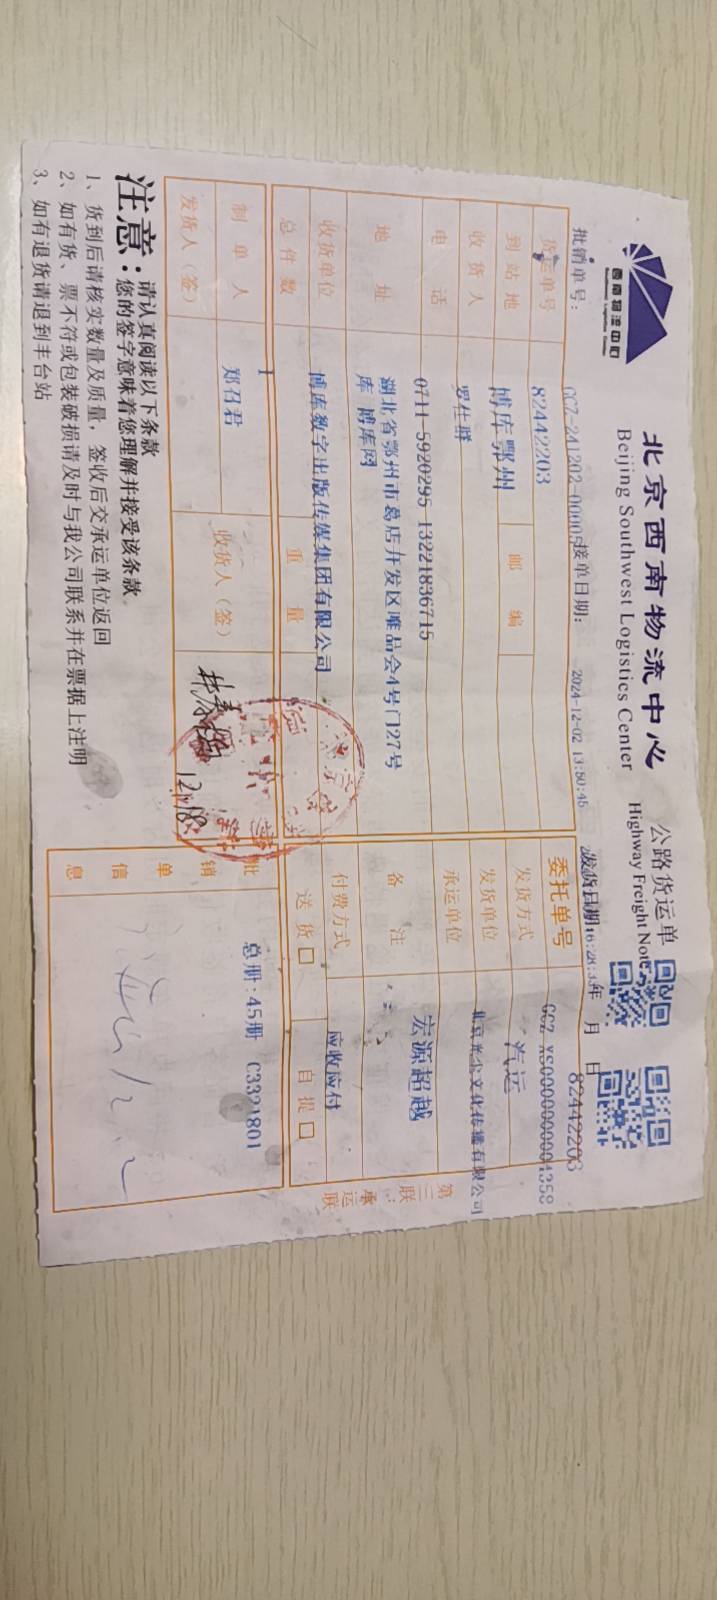 西南物流中心
Southwest Logistics Center
北京西南物流中心
Beijing Southwest Logistics Center
公路货运单
Highway Freight Note
82442203
批销单号: GGZ-241202-0000
接单日期: 2024-12-02 13:50:45
发货日期 年 月 日
货运单号 82442203
委托单号 GGZ-XS00000000004358
到站地 博库鄂州 邮编
发货方式 汽运
收货人 罗仕群
发货单位 北京光尘文化传播有限公司
电话 0711-5920295 13221836715
承运单位 宏源超越
地址 湖北省鄂州市葛店开发区唯品会4号门27号
库 博库网
备注
收货单位 博库数字出版传媒集团有限公司
付费方式 应收应付
总件数 1 重量
送货□ 自提□
制单人 郑召君 收货人(签)
发货人(签)
12.18
批销单信息
总册:45册 C3321801
第三联:承运联
注意:
请认真阅读以下条款
您的签字意味着您理解并接受该条款。
1、货到后请核实数量及质量,签收后交承运单位返回
2、如有货、票不符或包装破损请及时与我公司联系并在票据上注明
3、如有退货请退到丰台站